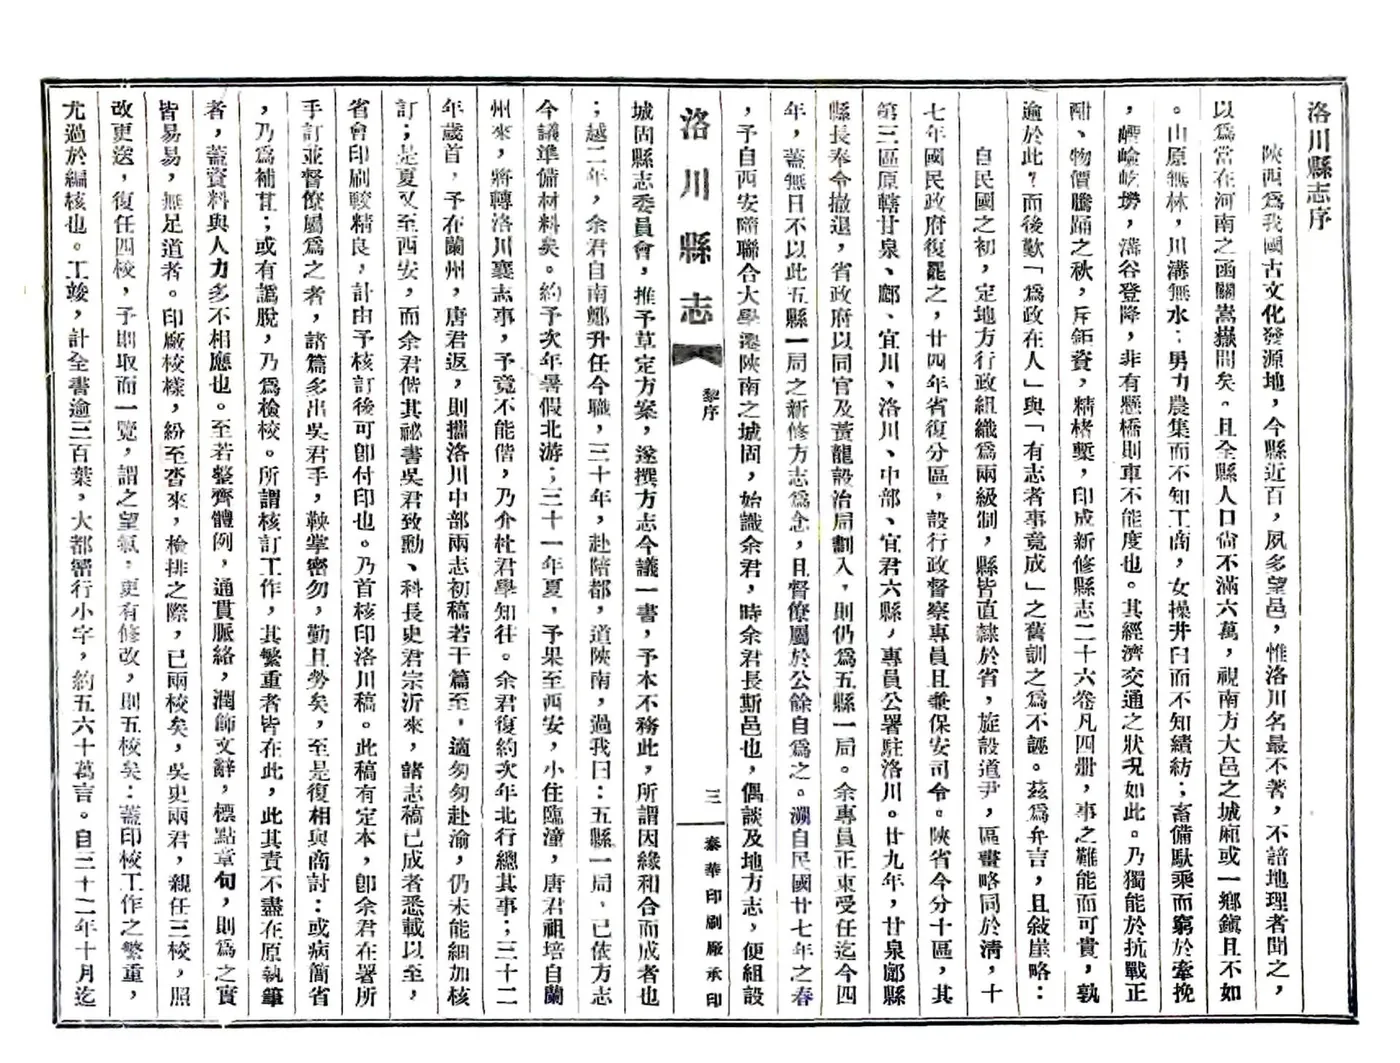 洛川縣志序
陝西爲我國古文化發源地，今縣近百，夙多望邑，惟洛川名最不著，不諳地理者聞之，
以爲當在河南之函關嵩嶽間矣。且全縣人口尙不滿六萬，視南方大邑之城廂或一鄉鎭且不如
。山原無林，川溝無水；男力農集而不知工商，女操井臼而不知績紡；畜備馱乘而窮於牽挽
，嶇崯屹塄，溝谷登降，非有懸橋則車不能度也。其經濟交通之狀況如此。乃獨能於抗戰正
酣、物價騰踊之秋，斥鉅資，精楮槧，印成新修縣志二十六卷凡四册，事之難能而可貴，孰
逾於此？而後歎「爲政在人」與「有志者事竟成」之舊訓之爲不誣。茲爲弁言，且敍崖略：
自民國之初，定地方行政組織爲兩級制，縣皆直隸於省，旋設道尹，區畫略同於清，十
七年國民政府復罷之，廿四年省復分區，設行政督察專員且兼保安司令。陝省今分十區，其
第三區原轄甘泉、鄜、宜川、洛川、中部、宜君六縣，專員公署駐洛川。廿九年，甘泉鄜縣
縣長奉令撤退，省政府以同官及黃龍設治局劃入，則仍爲五縣一局。余專員正東受任迄今四
年，蓋無日不以此五縣一局之新修方志爲念，且督僚屬於公餘自爲之。溯自民國廿七年之春
，予自西安隨聯合大學遷陝南之城固，始識余君，時余君長斯邑也，偶談及地方志，便組設
洛川縣志
黎序
三
泰華印刷廠承印
城固縣志委員會，推予草定方案，遂撰方志今議一書，予本不務此，所謂因緣和合而成者也
；越二年，余君自南鄭升任今職，三十年，赴陪都，道陝南，過我曰：五縣一局，已依方志
今議準備材料矣。約予次年暑假北游；三十一年夏，予果至西安，小住臨潼，唐君祖培自蘭
州來，將轉洛川襄志事，予竟不能偕，乃介杜君學知往。余君復約次年北行總其事；三十二
年歲首，予在蘭州，唐君返，則攜洛川中部兩志初稿若干篇至，適匆匆赴渝，仍未能細加核
訂；是夏又至西安，而余君偕其祕書吳君致勳、科長史君宗沂來，諸志稿已成者悉載以至，
省會印刷較精良，計由予核訂後可卽付印也。乃首核印洛川稿。此稿有定本，卽余君在署所
手訂並督僚屬爲之者，諸篇多出吳君手，鞅掌密勿，勤且勞矣，至是復相與商討：或病簡省
，乃爲補苴；或有譌脫，乃爲檢校。所謂核訂工作，其繁重者皆在此，此其責不盡在原執筆
者，蓋資料與人力多不相應也。至若整齊體例，通貫脈絡，潤飾文辭，標點章句，則爲之實
皆易易，無足道者。印廠校樣，紛至沓來，檢排之際，已兩校矣，吳史兩君，親任三校，照
改更送，復任四校，予則取而一覽，謂之望氣，更有修改，則五校矣：蓋印校工作之繁重，
尤過於編核也。工竣，計全書逾三百葉，大都密行小字，約五六十萬言。自三十二年十月迄